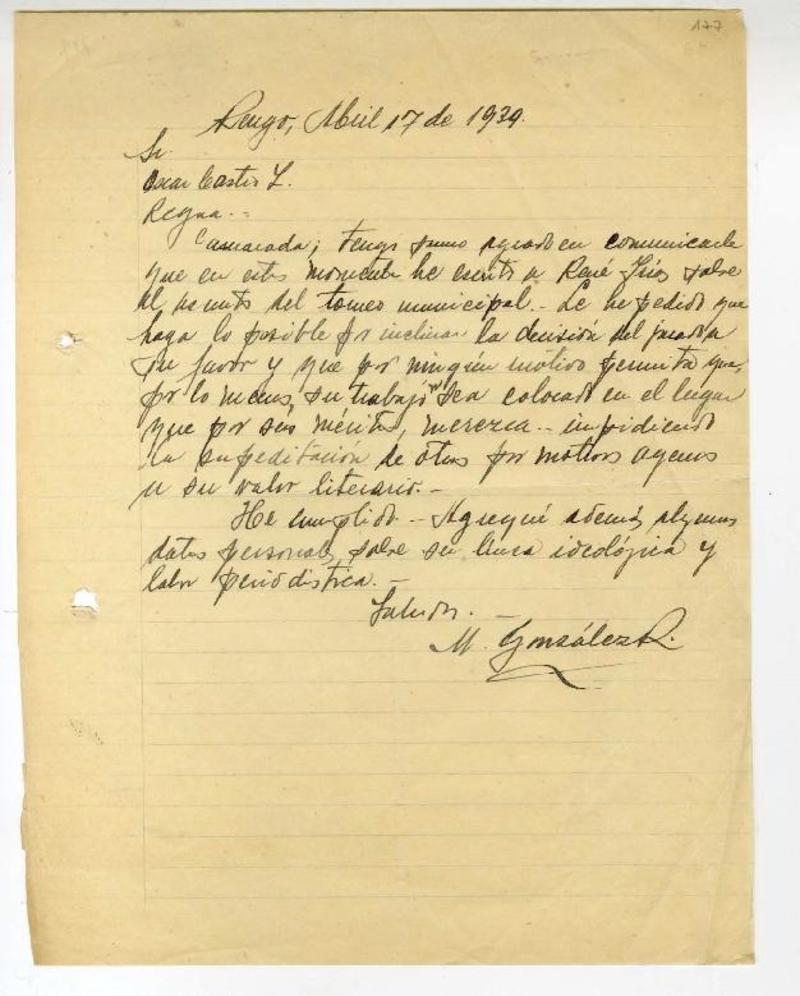 177
Rengo, Abril 17 de 1939.
Sr.
Oscar Castro Z.
Rcgua.-
Camarada; tengo sumo agrado en comunicarle
que en estos momentos he escrito a René Frías sobre
el asunto del torneo municipal.- Le he pedido que
haga lo posible por inclinar la decisión del jurado a
su favor y que por ningún motivo permita que,
por lo menos, su trabajo sea colocado en el lugar
que por sus méritos, merezca.- impidiendo
la supeditación de otros por motivos agenos
a su valor literario.-
He cumplido.- Agregué además, algunos
datos personales, sobre su línea ideológica y
labor periodística.-
Saludos.-
M. González R.